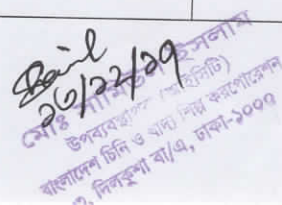 ২৬/১২/১৭
মোঃ সামিউল ইসলাম
উপব্যবস্থাপক (আইসিটি)
বাংলাদেশ চিনি ও খাদ্য শিল্প করপোরেশন
দিলকুশা বা/এ, ঢাকা-১০০০